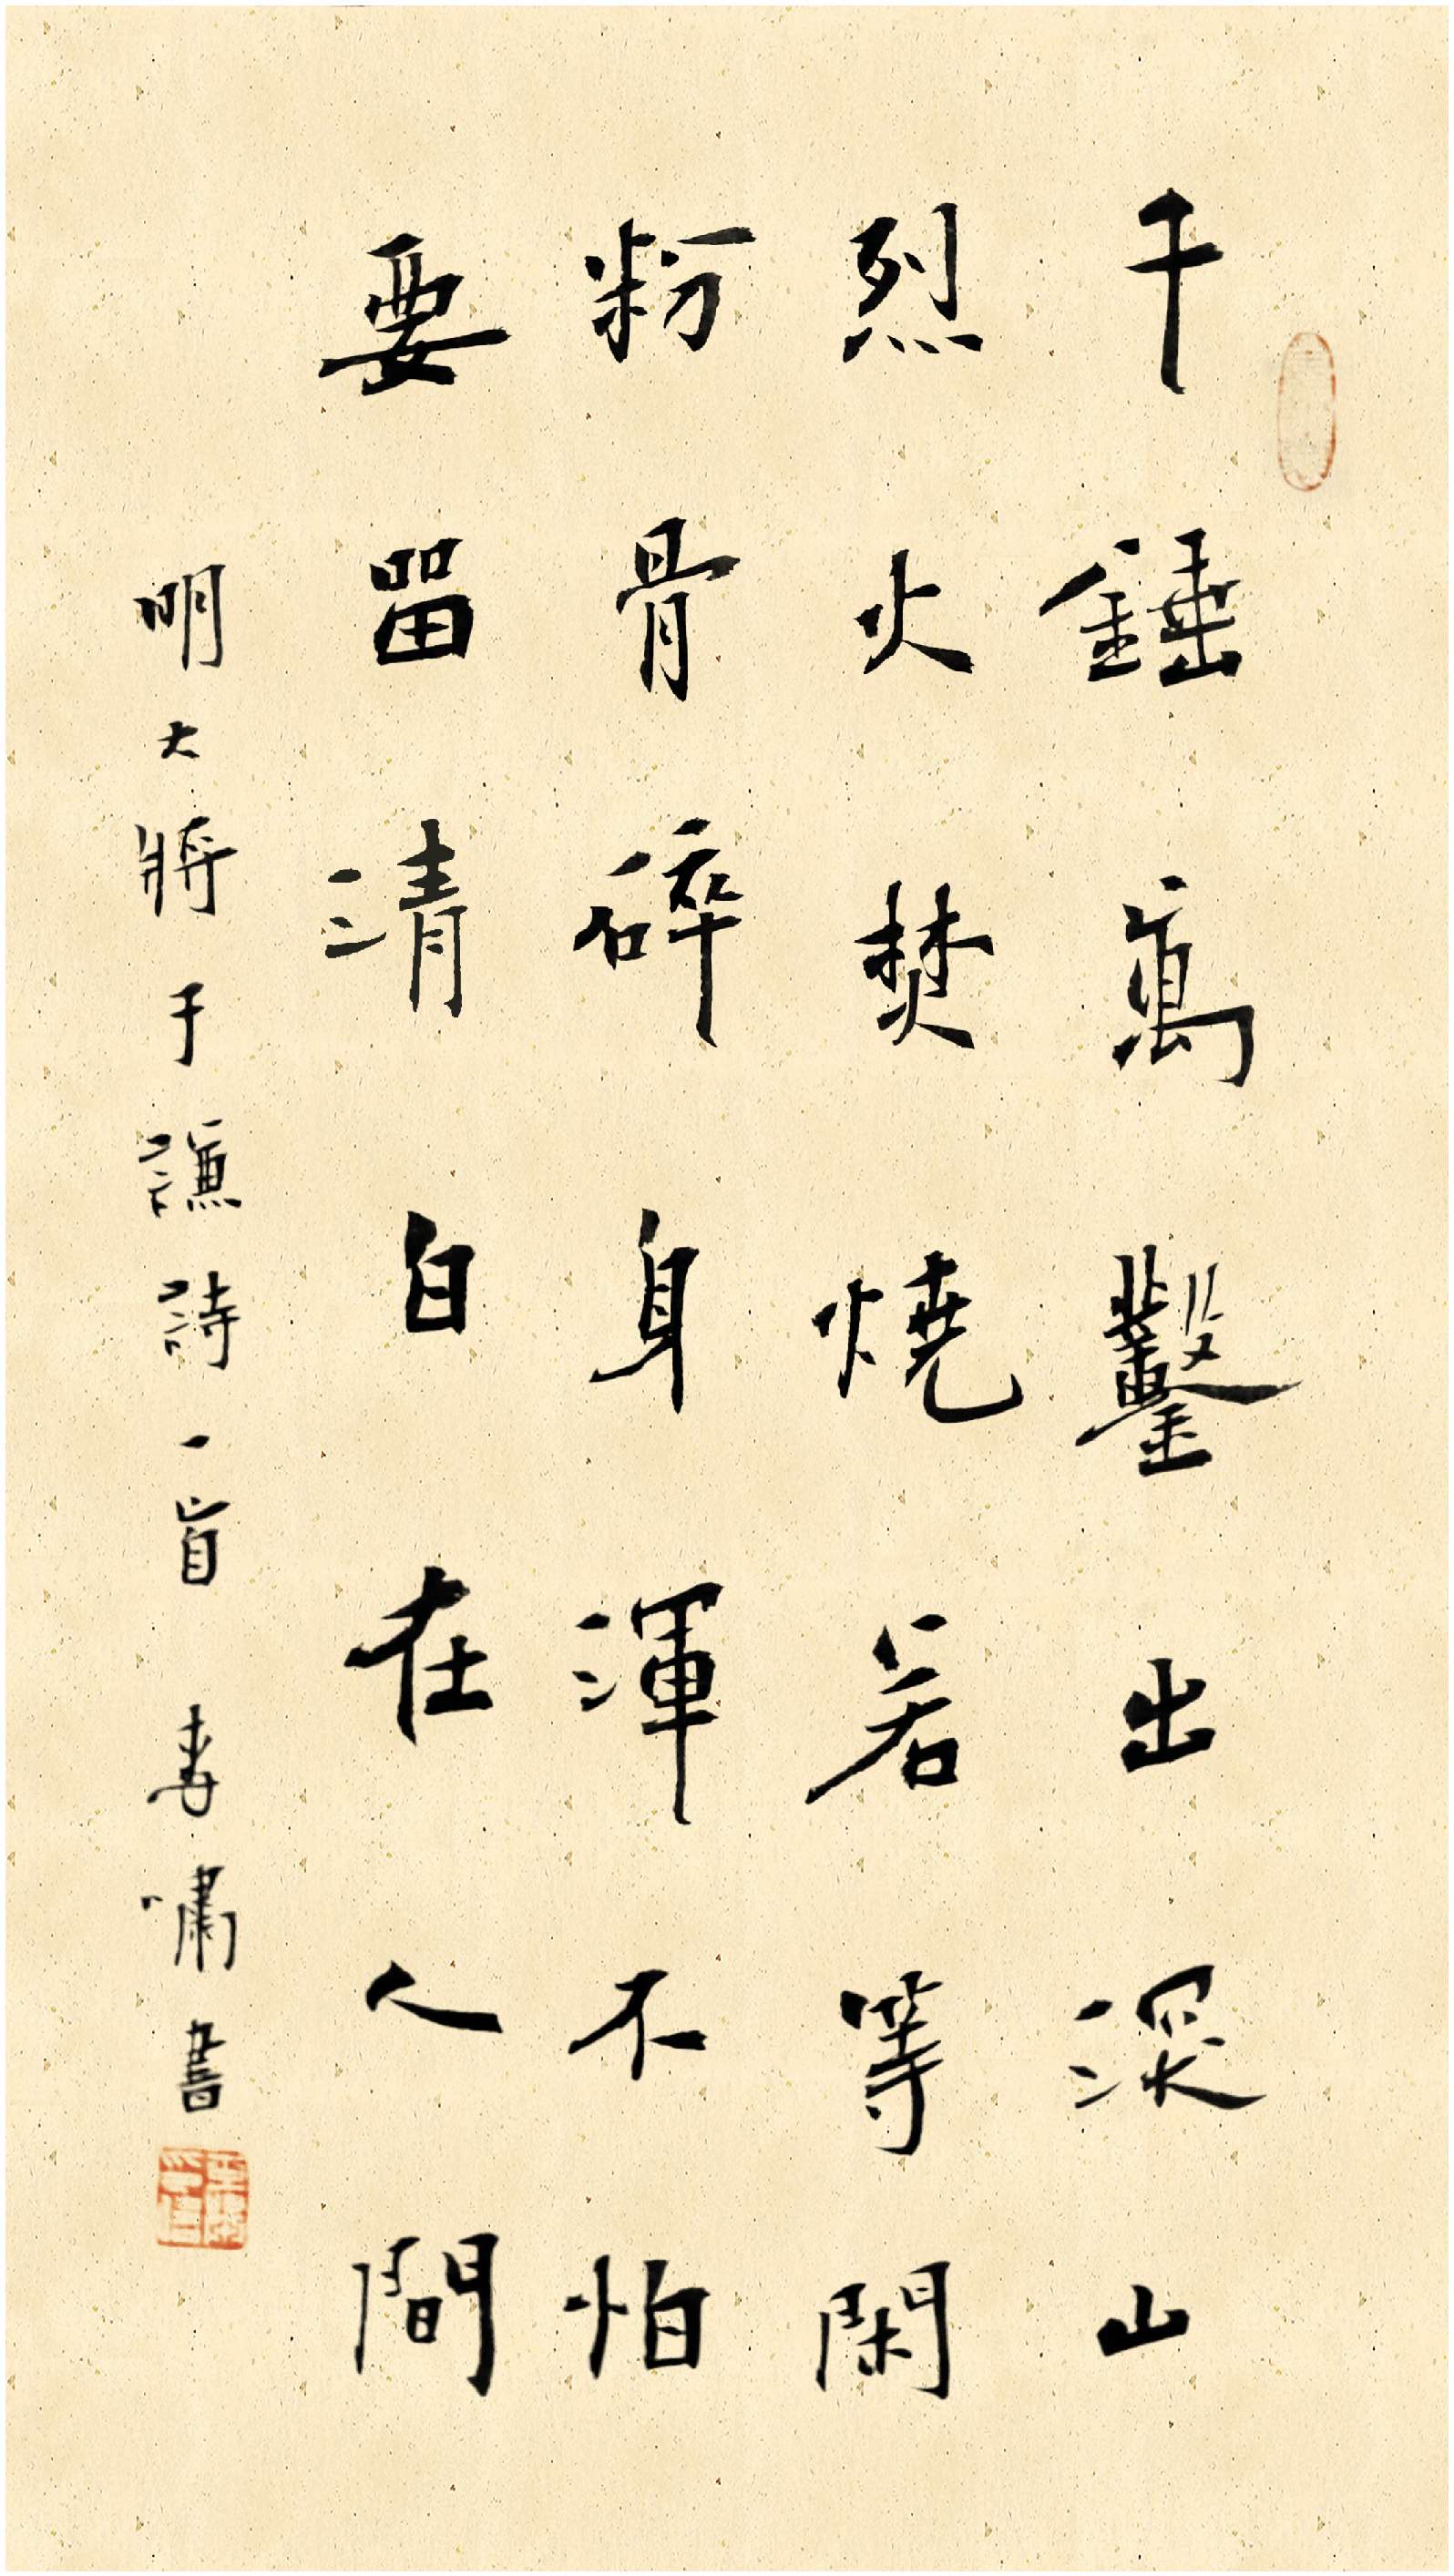 千錘萬鑿出深山
烈火焚燒若等閑
粉骨碎身渾不怕
要留清白在人間
明大將于謙詩一首 李嘯書